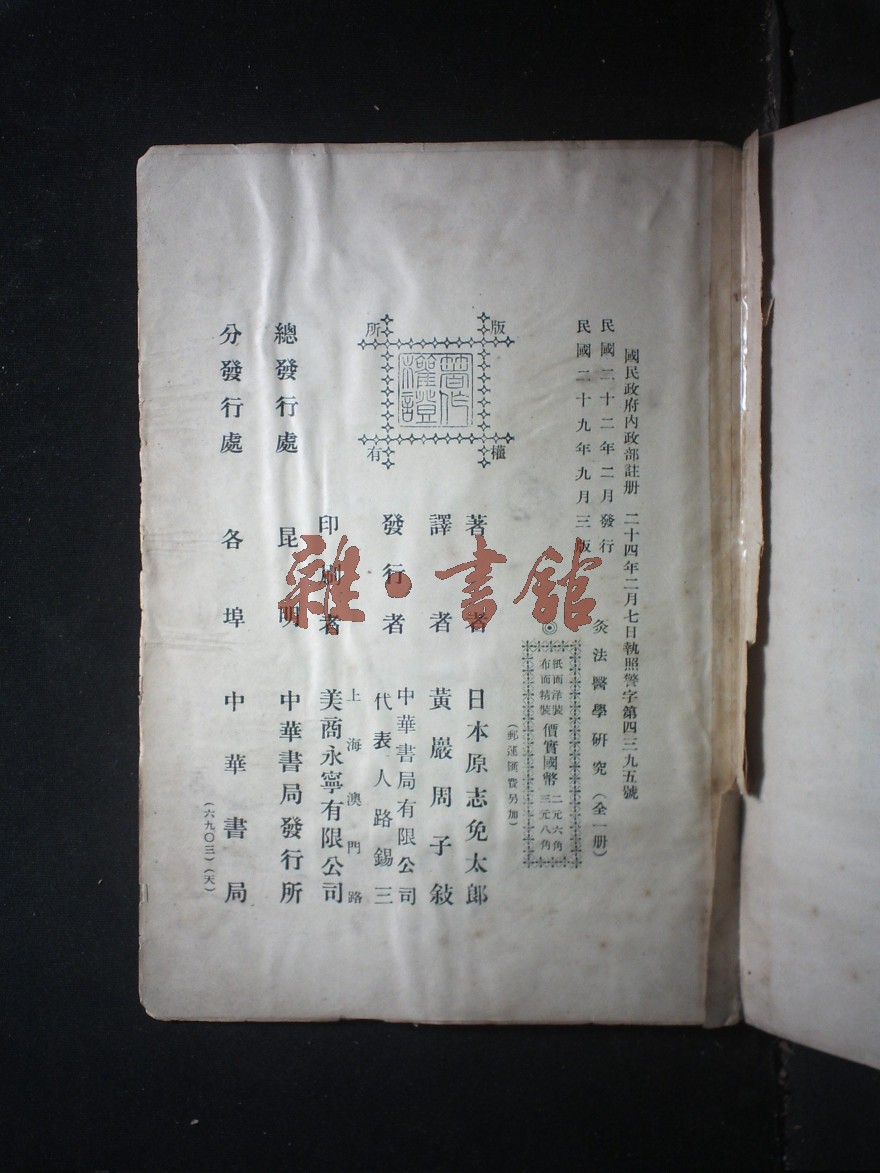 國民政府內政部註册　二十四年二月七日執照警字第四三九五號
民國二十二年二月發行
民國二十九年九月三版
灸法醫學研究（全一册）
◎
紙面洋裝
布面精裝
價實國幣
二元六角
三元八角
（郵運匯費另加）
版權所有
著作權證
著者　日本原志免太郎
譯者　黃巖周子敍
發行者　中華書局有限公司
代表人路錫三
印刷者　上海澳門路
美商永寧有限公司
總發行處　昆明　中華書局發行所
分發行處　各埠　中華書局
（六九〇三）（天）
雜·書館